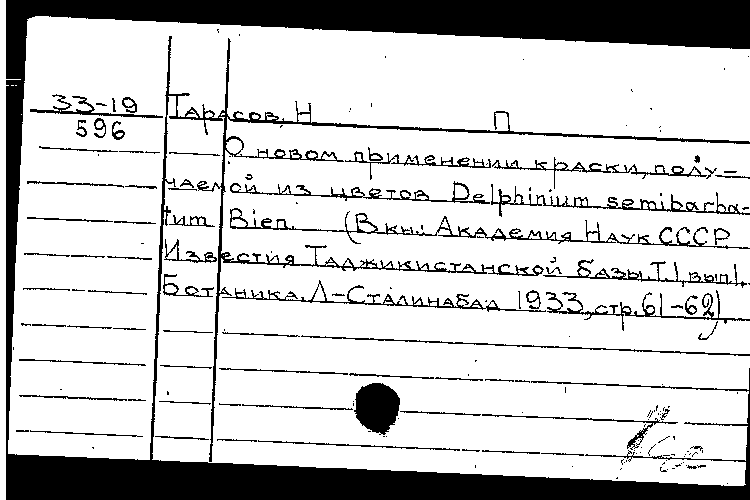 33-19 Тарасов, Н П
596
О новом применении краски, полу-
чаемой из цветов Delphinium semibarba-
tum Bien. (В кн.: Академия Наук СССР
Известия Таджикистанской базы. Т.I, вып.I.
Ботаника. Л-Сталинабад 1933, стр. 61-62).